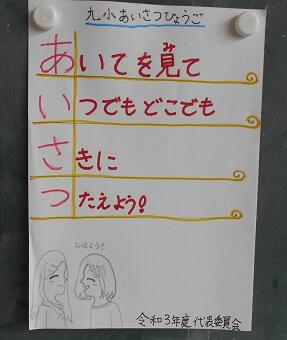 九小あいさつひょうご
あいてを見て
み
いつでもどこでも
さきに
つたえよう!
おはよう!
令和3年度代表委員会